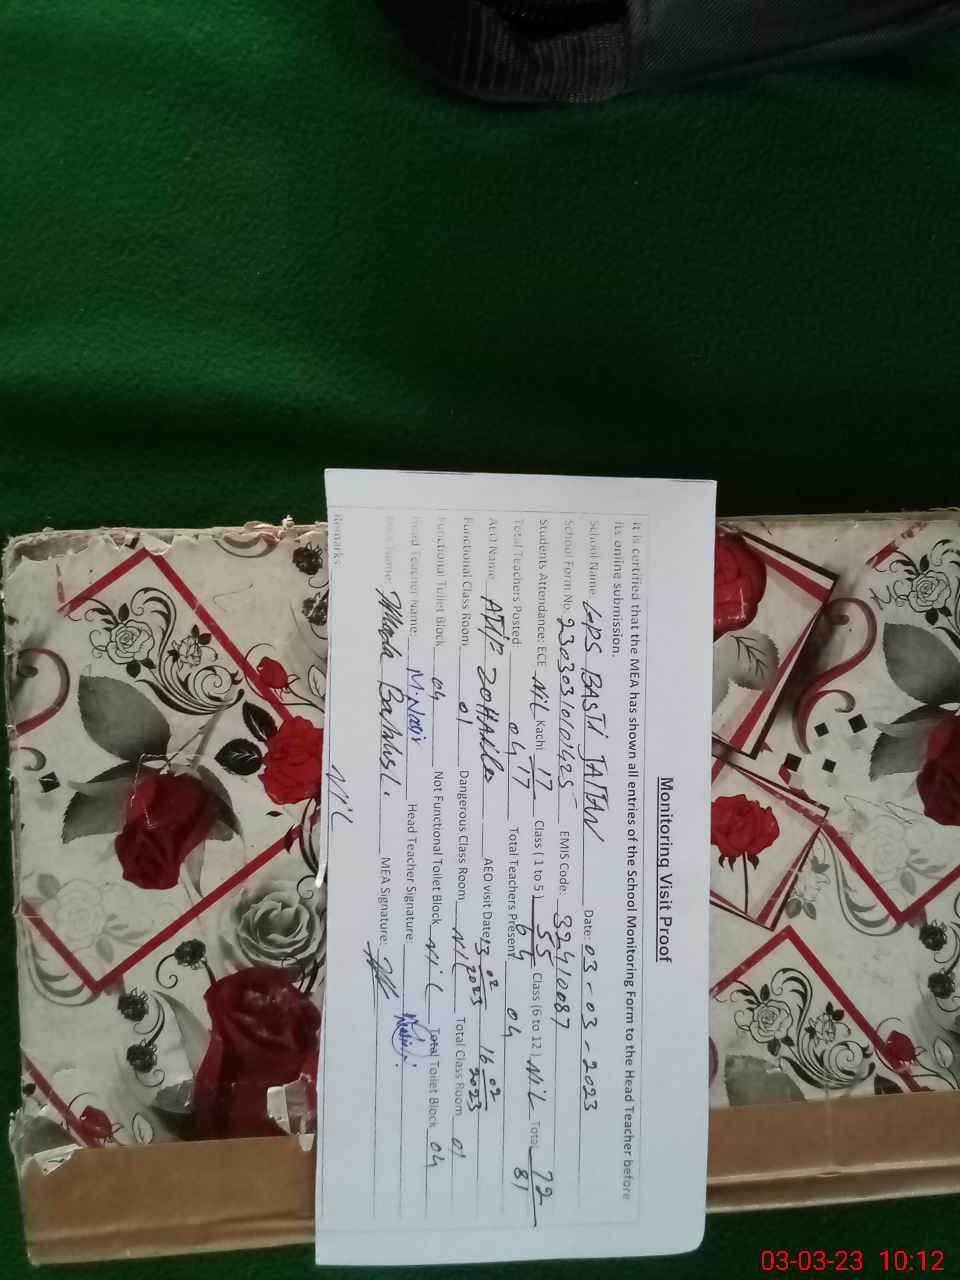 Monitoring Visit Proof
It is certified that the MEA has shown all entries of the School Monitoring Form to the Head Teacher before
its online submission.
School Name GPS BASTI JATAN Date: 03-03-2023
School Form No. 23030310101425 EMIS Code: 32410087
Students Attendance: ECE Nil Kachi 17/17 Class (1 to 5) 55/64 Class (6 to 12) Nil Total 72/81
Total Teachers Posted: 04 Total Teachers Present 04
AEO Name AEO visit Date 13 02 2023 16 02 2023
Functional Class Room 01 Dangerous Class Room NIL Total Class Room 01
Functional Toilet Block 04 Not Functional Toilet Block Nil Total Toilet Block 04
Head Teacher Name: M. Nazir Head Teacher Signature:
MEA Name: MEA Signature:
Remarks Nil
03-03-23 10:12